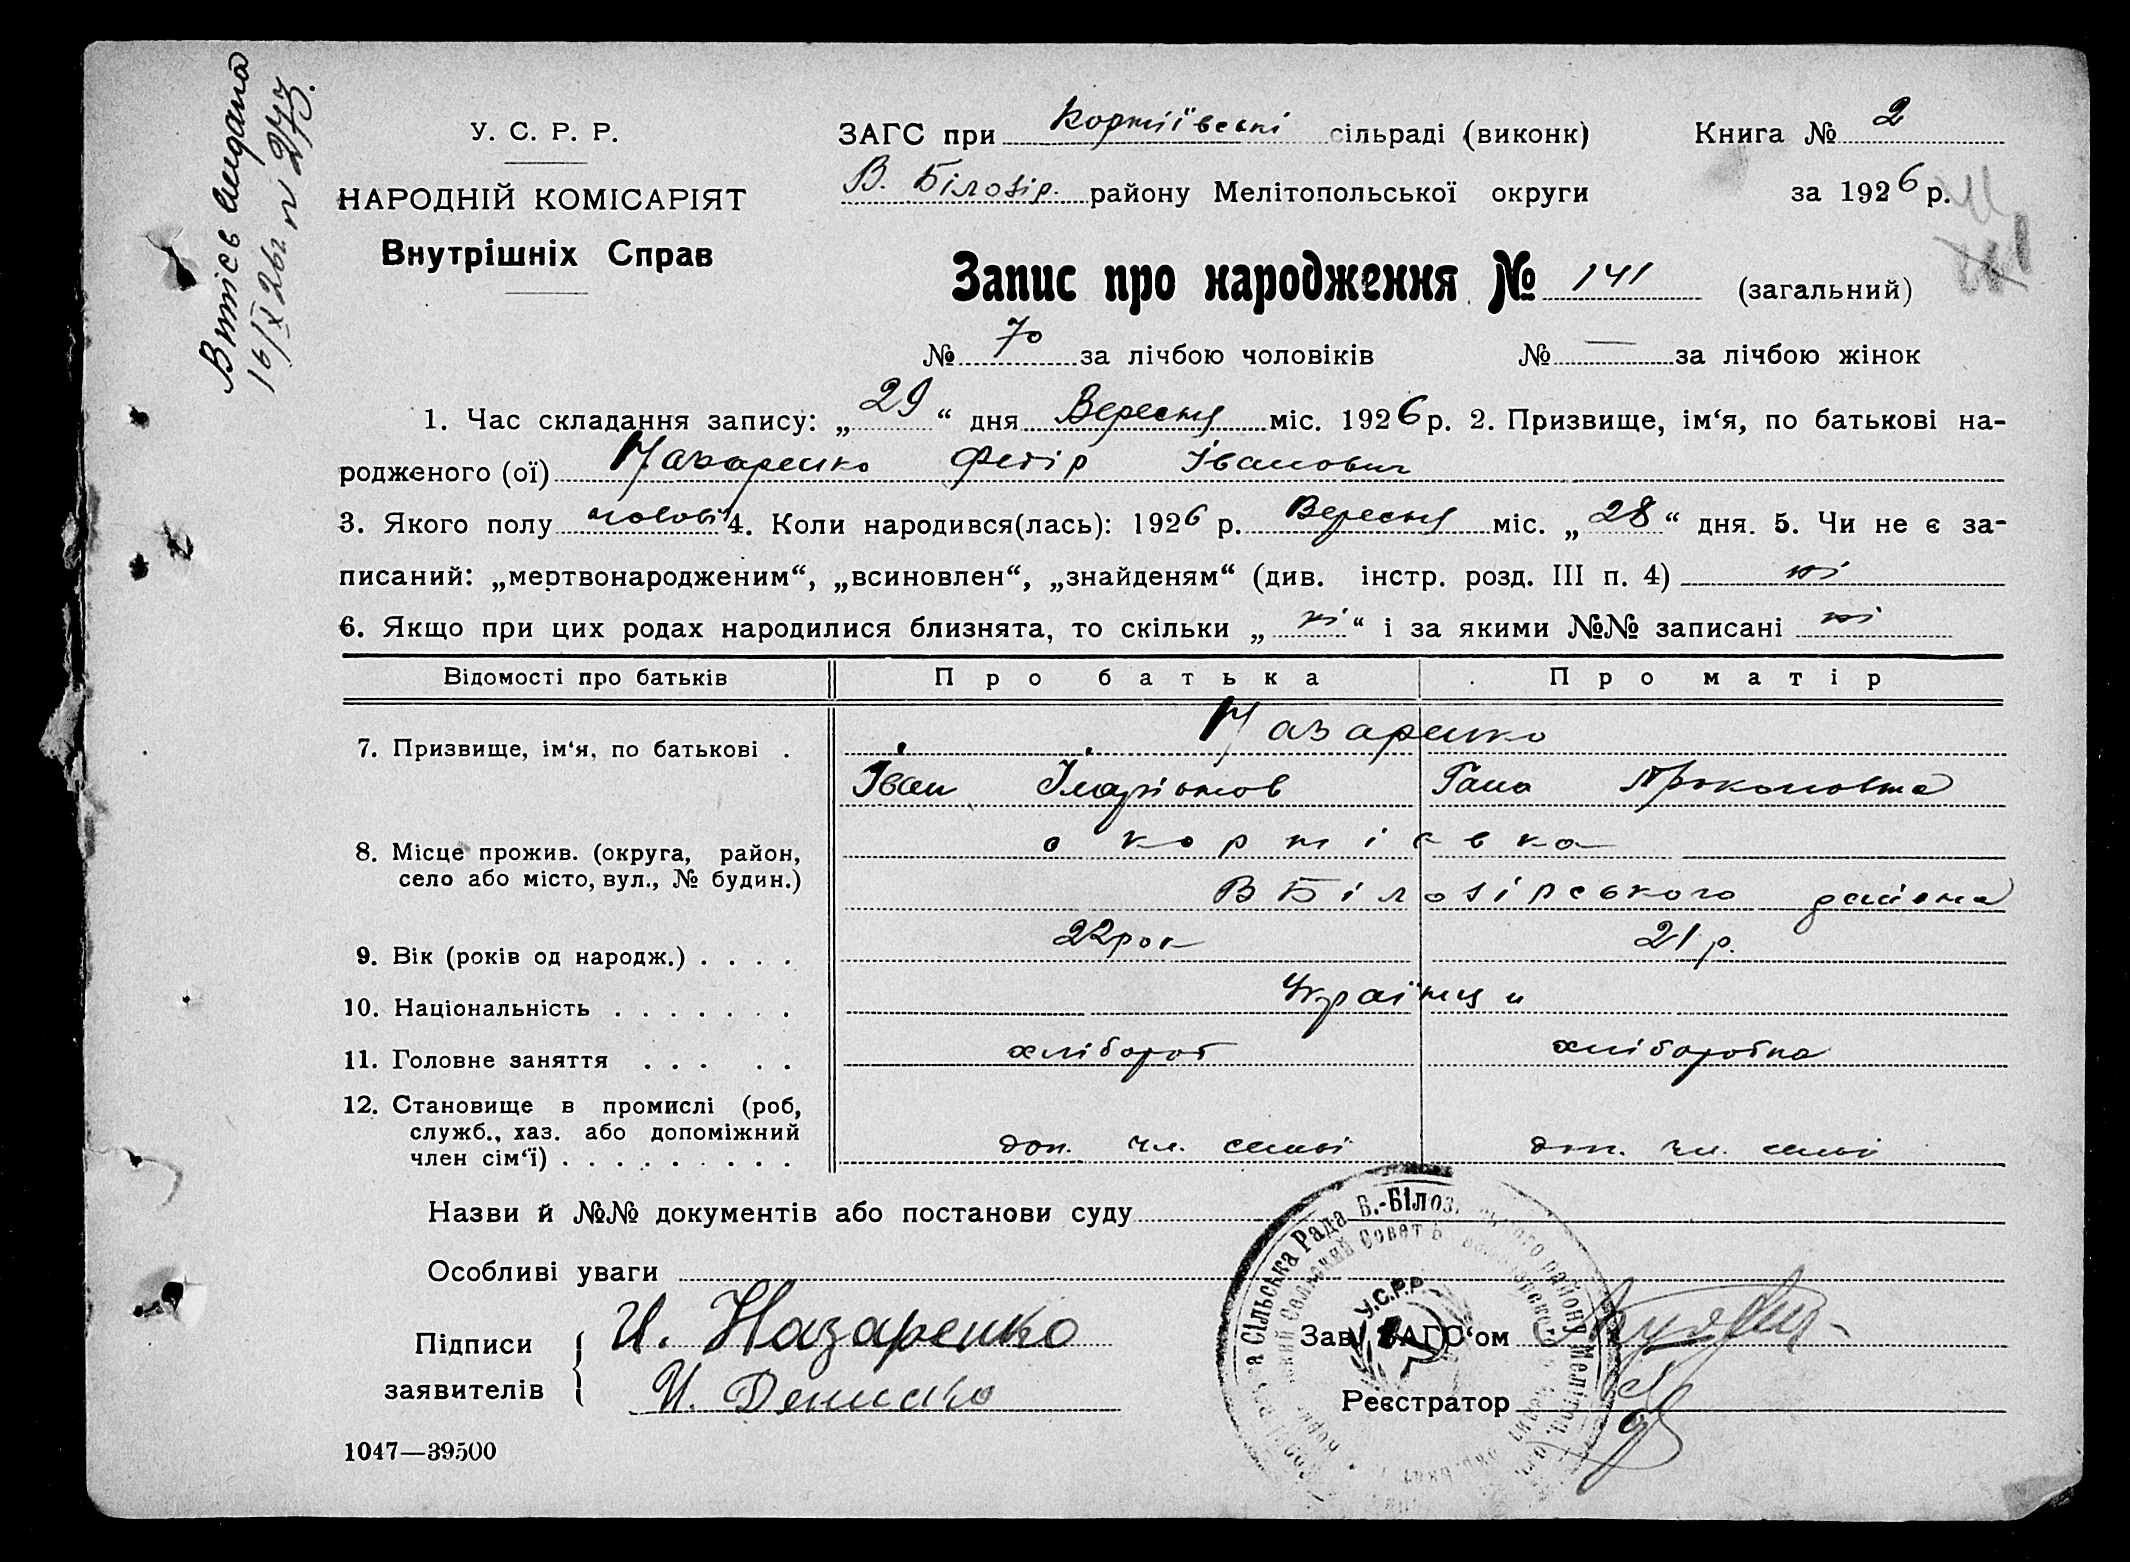 Витіег видана
16/X 26г № 273.
У. С. Р. Р.
НАРОДНІЙ КОМІСАРІЯТ
Внутрішніх Справ
ЗАГС при Корніївські сільраді (виконк)
В. Білозір. району Мелітопольської округи
Книга № 2
за 1926 р.
Запис про народження № 141 (загальний)
№ 70 за лічбою чоловіків № — за лічбою жінок
1. Час складання запису: „29“ дня Вересня міс. 1926 р. 2. Призвище, ім‘я, по батькові на-
родженого (ої) Назаренко Федір Іванович
3. Якого полу чолові 4. Коли народився(лась): 1926 р. Вересня міс. „28“ дня. 5. Чи не є за-
писаний: „мертвонародженим“, „всиновлен“, „знайденям“ (див. інстр. розд. III п. 4) ні
6. Якщо при цих родах народилися близнята, то скільки „ні“ і за якими №№ записані ні
Відомості про батьків Про батька Про матір
7. Призвище, ім‘я, по батькові . Назаренко
Іван Іларіонов Гана Прокоповна
8. Місце прожив. (округа, район, с Корніевка
село або місто, вул., № будин.) В Білозірського района
9. Вік (років од народж.) . . . . 22 рок 21 р.
10. Національність . . . . . . . Українци
11. Головне заняття . . . . . хлібороб хліборобка
12. Становище в промислі (роб,
служб., хаз. або допоміжний
член сім‘ї) . . . . . . . . . доп. чл. семьї доп. чл. семьї
Назви й №№ документів або постанови суду
Особливі уваги
Підписи
заявителів
И. Назаренко
И. Денисенко
Зав. ЗАГС‘ом
Реєстратор
Сільська Рада В.-Білоз. району Меліт
Сельский Совет
У.С.Р.Р.
1047—39500